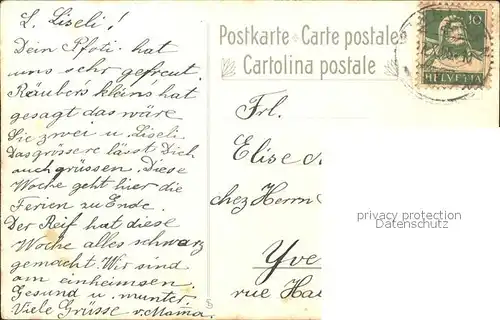 L. Liseli!
Dein Pfoti hat
uns sehr gefreut.
Räubers kleins hat
gesagt das wäre
Sie zwei u. Liseli
Das grössere lässt Dich
auch grüssen. Diese
Woche geht hier die
Ferien zu Ende.
Der Reif hat diese
Woche alles schwarz
gemacht. Wir sind
am einheimsen.
Gesund u. munter.
Viele Grüsse v. Mama.
Postkarte - Carte postale
Cartolina postale
10
HELVETIA
Frl.
Elise
chez Herrn
privacy protection
www.
.com
Yve
rue Hal